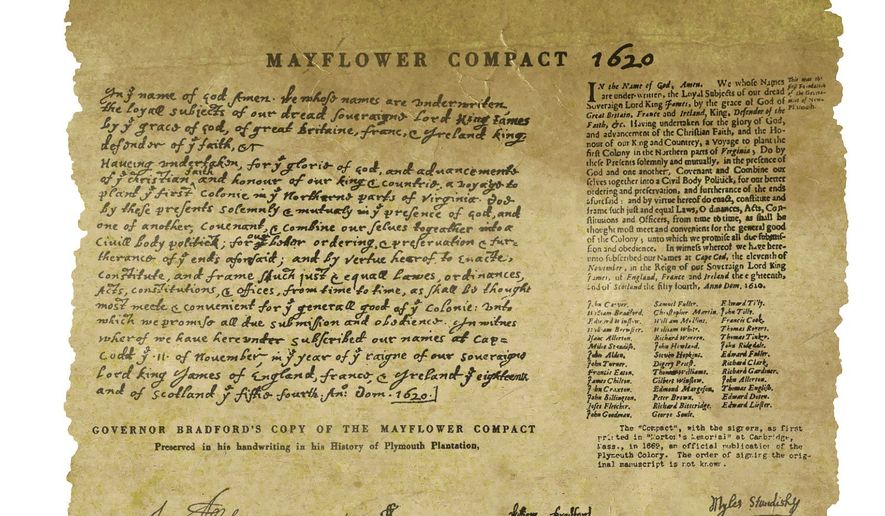 MAYFLOWER COMPACT 1620
In yͤ name of god Amen. We whose names are underwriten,
the loyall subjects of our dread soveraigne Lord King James
by yͤ grace of god, of great Britaine, franc, & Ireland king,
defender of yͤ faith, &c
Haveing undertaken, for yͤ glorie of god, and advancemente
of yͤ christian faith and honour of our king & countrie, a voyage to
plant yͤ first colonie in yͤ Northerne parts of Virginia. Doe
by these presents solemnly & mutualy in yͤ presence of god, and
one of another, covenant, & combine our selves togeather into a
Civill body politick; for our better ordering, & preservation & fur-
therance of yͤ ends aforesaid; and by vertue hearof to Enacte,
constitute, and frame such just & equall Lawes, ordinances,
Acts, constitutions, & offices, from time to time, as shall be thought
most meete & convenient for yͤ generall good of yͤ Colonie: Unto
which we promise all due submission and obedience. In witnes
wherof we have here under subscribed our names at Cap=
Codd yͤ .11. of November, in yͤ year of yͤ raigne of our soveraigne
Lord king James of England, france, & Ireland yͤ eighteenth
and of Scotland yͤ fiftie fourth. Anº. Dom. 1620.]
GOVERNOR BRADFORD'S COPY OF THE MAYFLOWER COMPACT
Preserved in his handwriting in his History of Plymouth Plantation,
IN the Name of God, Amen. We whose Names
are under-written, the Loyal Subjects of our dread
Sovereign Lord King James, by the grace of God of
Great Britain, France and Ireland, King, Defender of the
Faith, &c. Having undertaken for the glory of God,
and advancement of the Christian Faith, and the Ho-
nour of our King and Countrey, a Voyage to plant the
first Colony in the Northern parts of Virginia; Do by
these Presents solemnly and mutually, in the presence of
God and one another, Covenant and Combine our
selves together into a Civil Body Politick, for our better
ordering and preservation, and furtherance of the ends
aforesaid: and by virtue hereof do enact, constitute and
frame such just and equal Laws, Ordinances, Acts, Con-
stitutions and Officers, from time to time, as shall be
thought most meet and convenient for the general good
of the Colony; unto which we promise all due submis-
sion and obedience. In witness whereof we have here-
unto subscribed our Names at Cape Cod, the eleventh of
November, in the Reign of our Sovereign Lord King
James, of England, France and Ireland the eighteenth,
and of Scotland the fifty fourth, Anno Dom. 1620.
This was the
first Foundation
of the Govern-
ment of New-
Plimouth.
John Carver, Samuel Fuller, Edward Tilly,
William Bradford, Christopher Martin, John Tilly,
Edward Winslow, William Mullins, Francis Cook,
William Brewster, William White, Thomas Rogers,
Isaac Allerton, Richard Warren, Thomas Tinker,
Miles Standish, John Howland, John Ridgdale,
John Alden, Steven Hopkins, Edward Fuller,
John Turner, Digery Priest, Richard Clark,
Francis Eaton, Thomas Williams, Richard Gardiner,
James Chilton, Gilbert Winslow, John Allerton,
John Craxton, Edmund Margeson, Thomas English,
John Billington, Peter Brown, Edward Doten,
Joses Fletcher, Richard Bitteridge, Edward Liester.
John Goodman, George Soule,
The "Compact", with the signers, as first
printed in "Morton's Memorial" at Cambridge,
Mass., in 1669, an official publication of the
Plymouth Colony. The order of signing the orig-
inal manuscript is not known.
Myles Standish